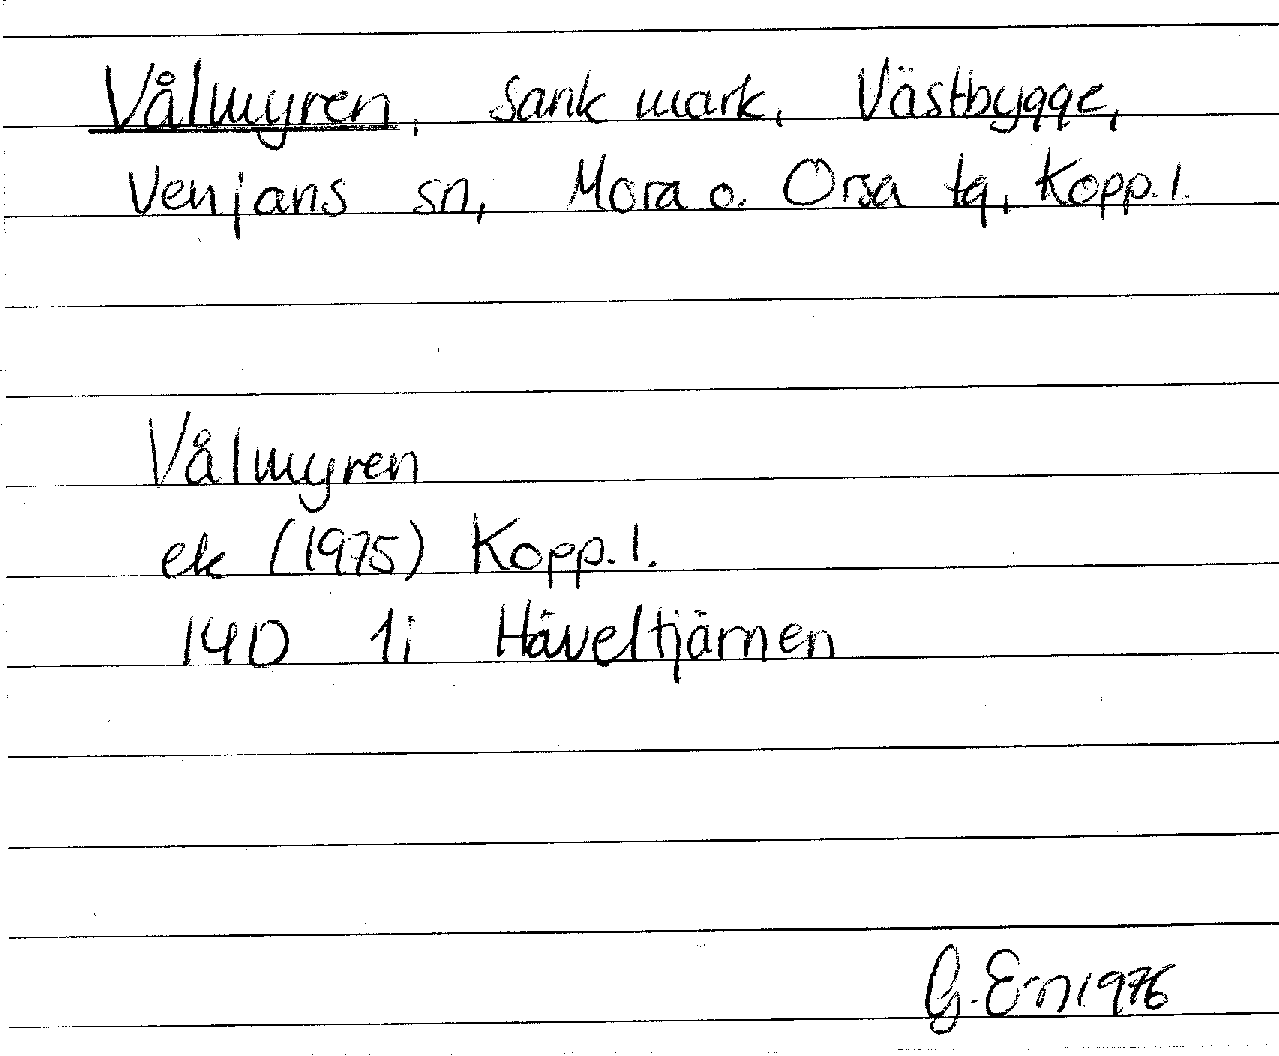 Vålmyren, sank mark, Västbygge,
Venjans sn, Mora o. Orsa tg, Kopp. l.
Vålmyren
ek (1975) Kopp. l.
14D 1i Häveltjärnen
G. E-n 1976